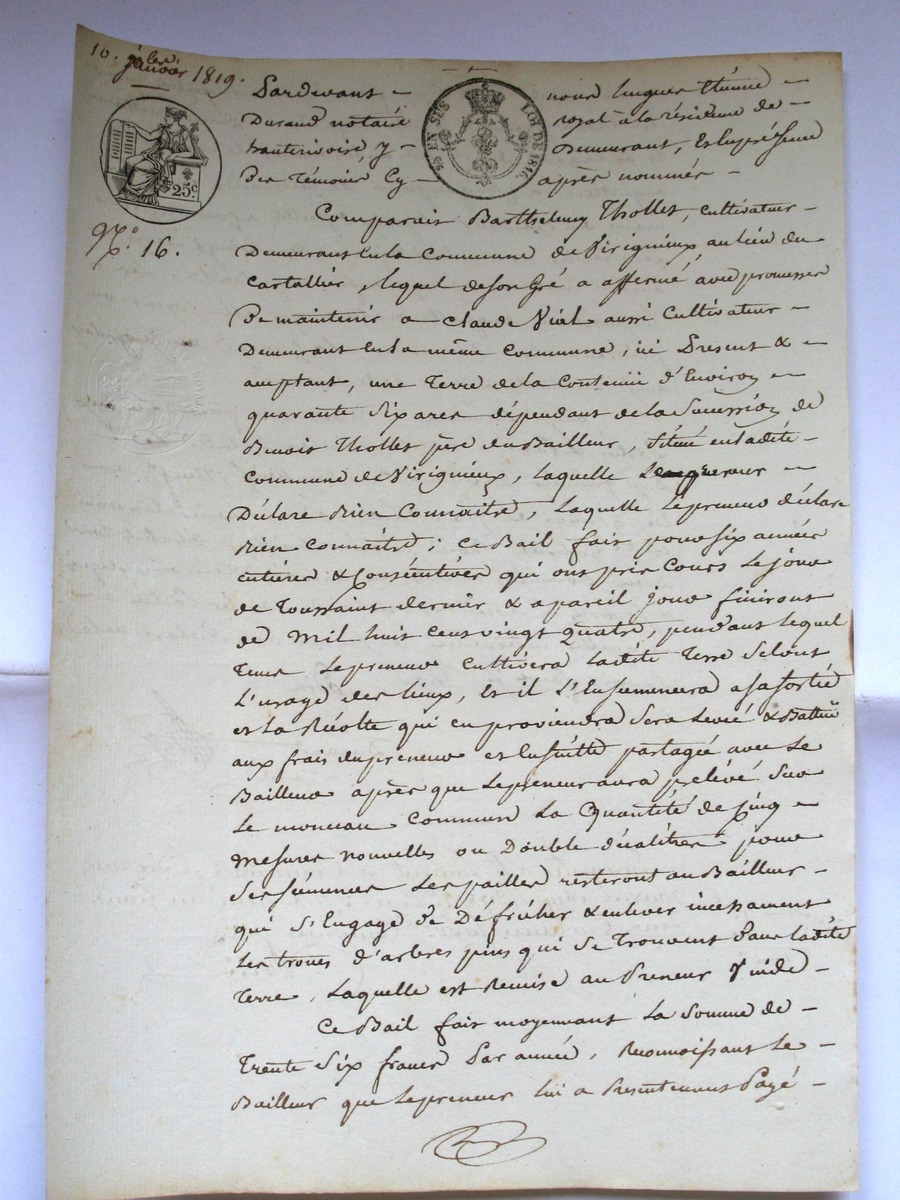 10. janvier 1819.
Pardevant - nous hugues Etienne -
Durand notaire royal à la résidence de -
hauterivoire y - Demeurant, En la présence
Des Témoins Cy - après nommés -
EN SUS LOI DE 1816.
25c.
N.o 16.
Comparait Barthelemy Thollet, Cultivateur -
Demeurant en la Commune de Virignieux au lieu du
Cartallier, lequel de son Gré a affermé avec promesse
De maintenir a Claude Vial aussi Cultivateur -
Demeurant en la même Commune, ici Present & -
acceptant, une Terre de la Contenue d'Environ -
quarante Six ares dépendant de la Succession de
Benoit Thollet père du Bailleur, Située en ladite -
Commune de Virignieux, laquelle Le -
Déclare Bien Connaître, Laquelle Le preneur déclare
Bien Connaître; Ce Bail fait pour Six années
entières & Consécutives qui ont pris Cours Le jour
de Toussaint dernier & a pareil jour finiront
de Mil huit cent vingt quatre, pendant Lequel
Tems Le preneur Cultivera ladite Terre Selont
L'usage des lieux, Et il L'Ensemencera a sa Sortie
et La Récolte qui en proviendra Sera Levée & Battue
aux frais du preneur et Ensuitte partagée avec Le
Bailleur après que Le preneur aura prélevé Sur
Le monceau Commun La Quantité de Cinq -
Mesures nouvelles ou Double décalitres pour
Ses Semences Les pailles resteront au Bailleur -
qui S'Engage De Défricher & enlever incessament
Les troncs d'arbres pins qui Se Trouvent Dans ladite
Terre, Laquelle est Remise au Preneur Vuide -
Ce Bail fait moyennant La Somme de -
Trente Six francs Par année, Reconnoissant Le -
Bailleur que Le preneur Lui a Presentement Payé -